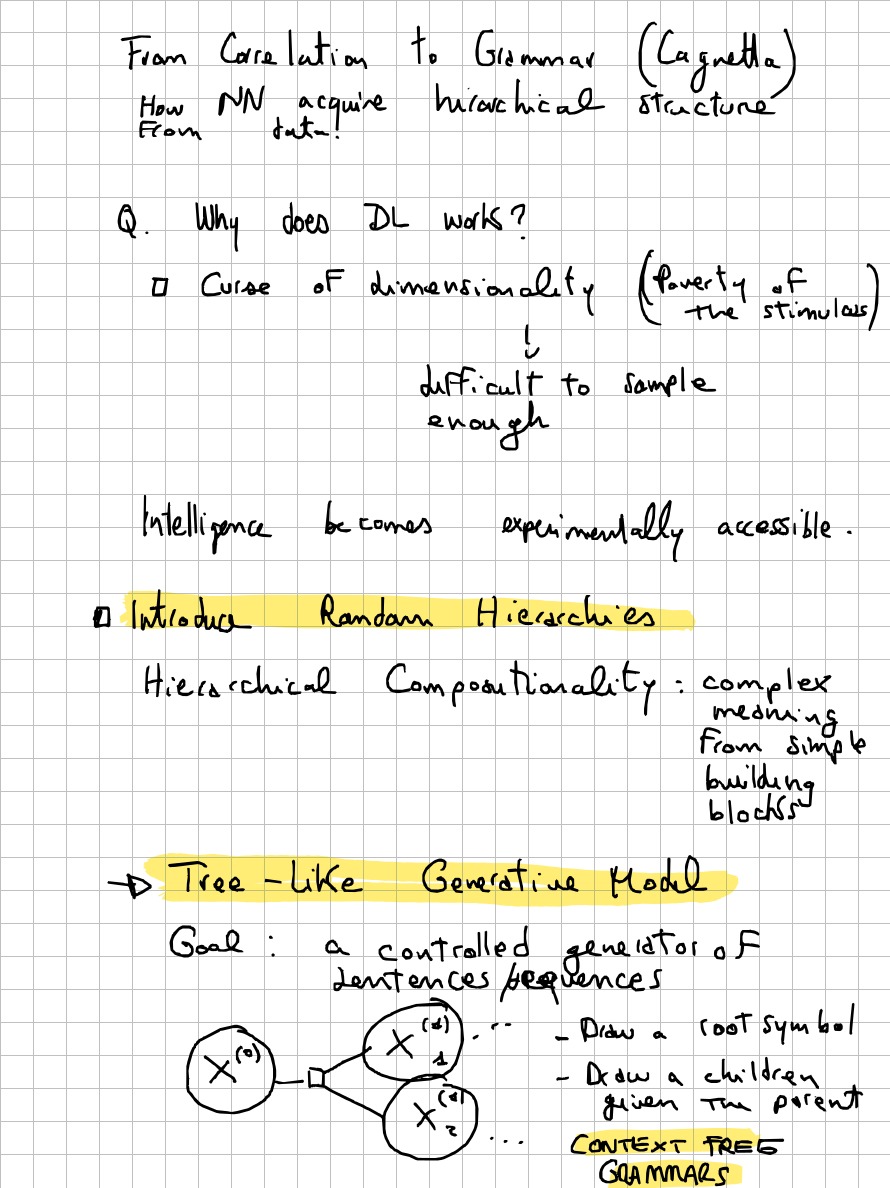 From Correlation to Grammar (Cagnetta)
How NN acquire hierarchical structure
From data!
Q. Why does DL works?
□ Curse of dimensionality (Poverty of
the stimulus)
↓
difficult to sample
enough
Intelligence becomes experimentally accessible.
□ Introduce Random Hierarchies
Hierarchical Compositionality : complex
meaning
From simple
building
blocks
→ Tree-Like Generative Model
Goal : a controlled generator of
sentences/sequences
X^(0)
X_1^(1) ...
X_2^(1) ...
- Draw a root symbol
- Draw a children
given the parent
CONTEXT FREE
GRAMMARS